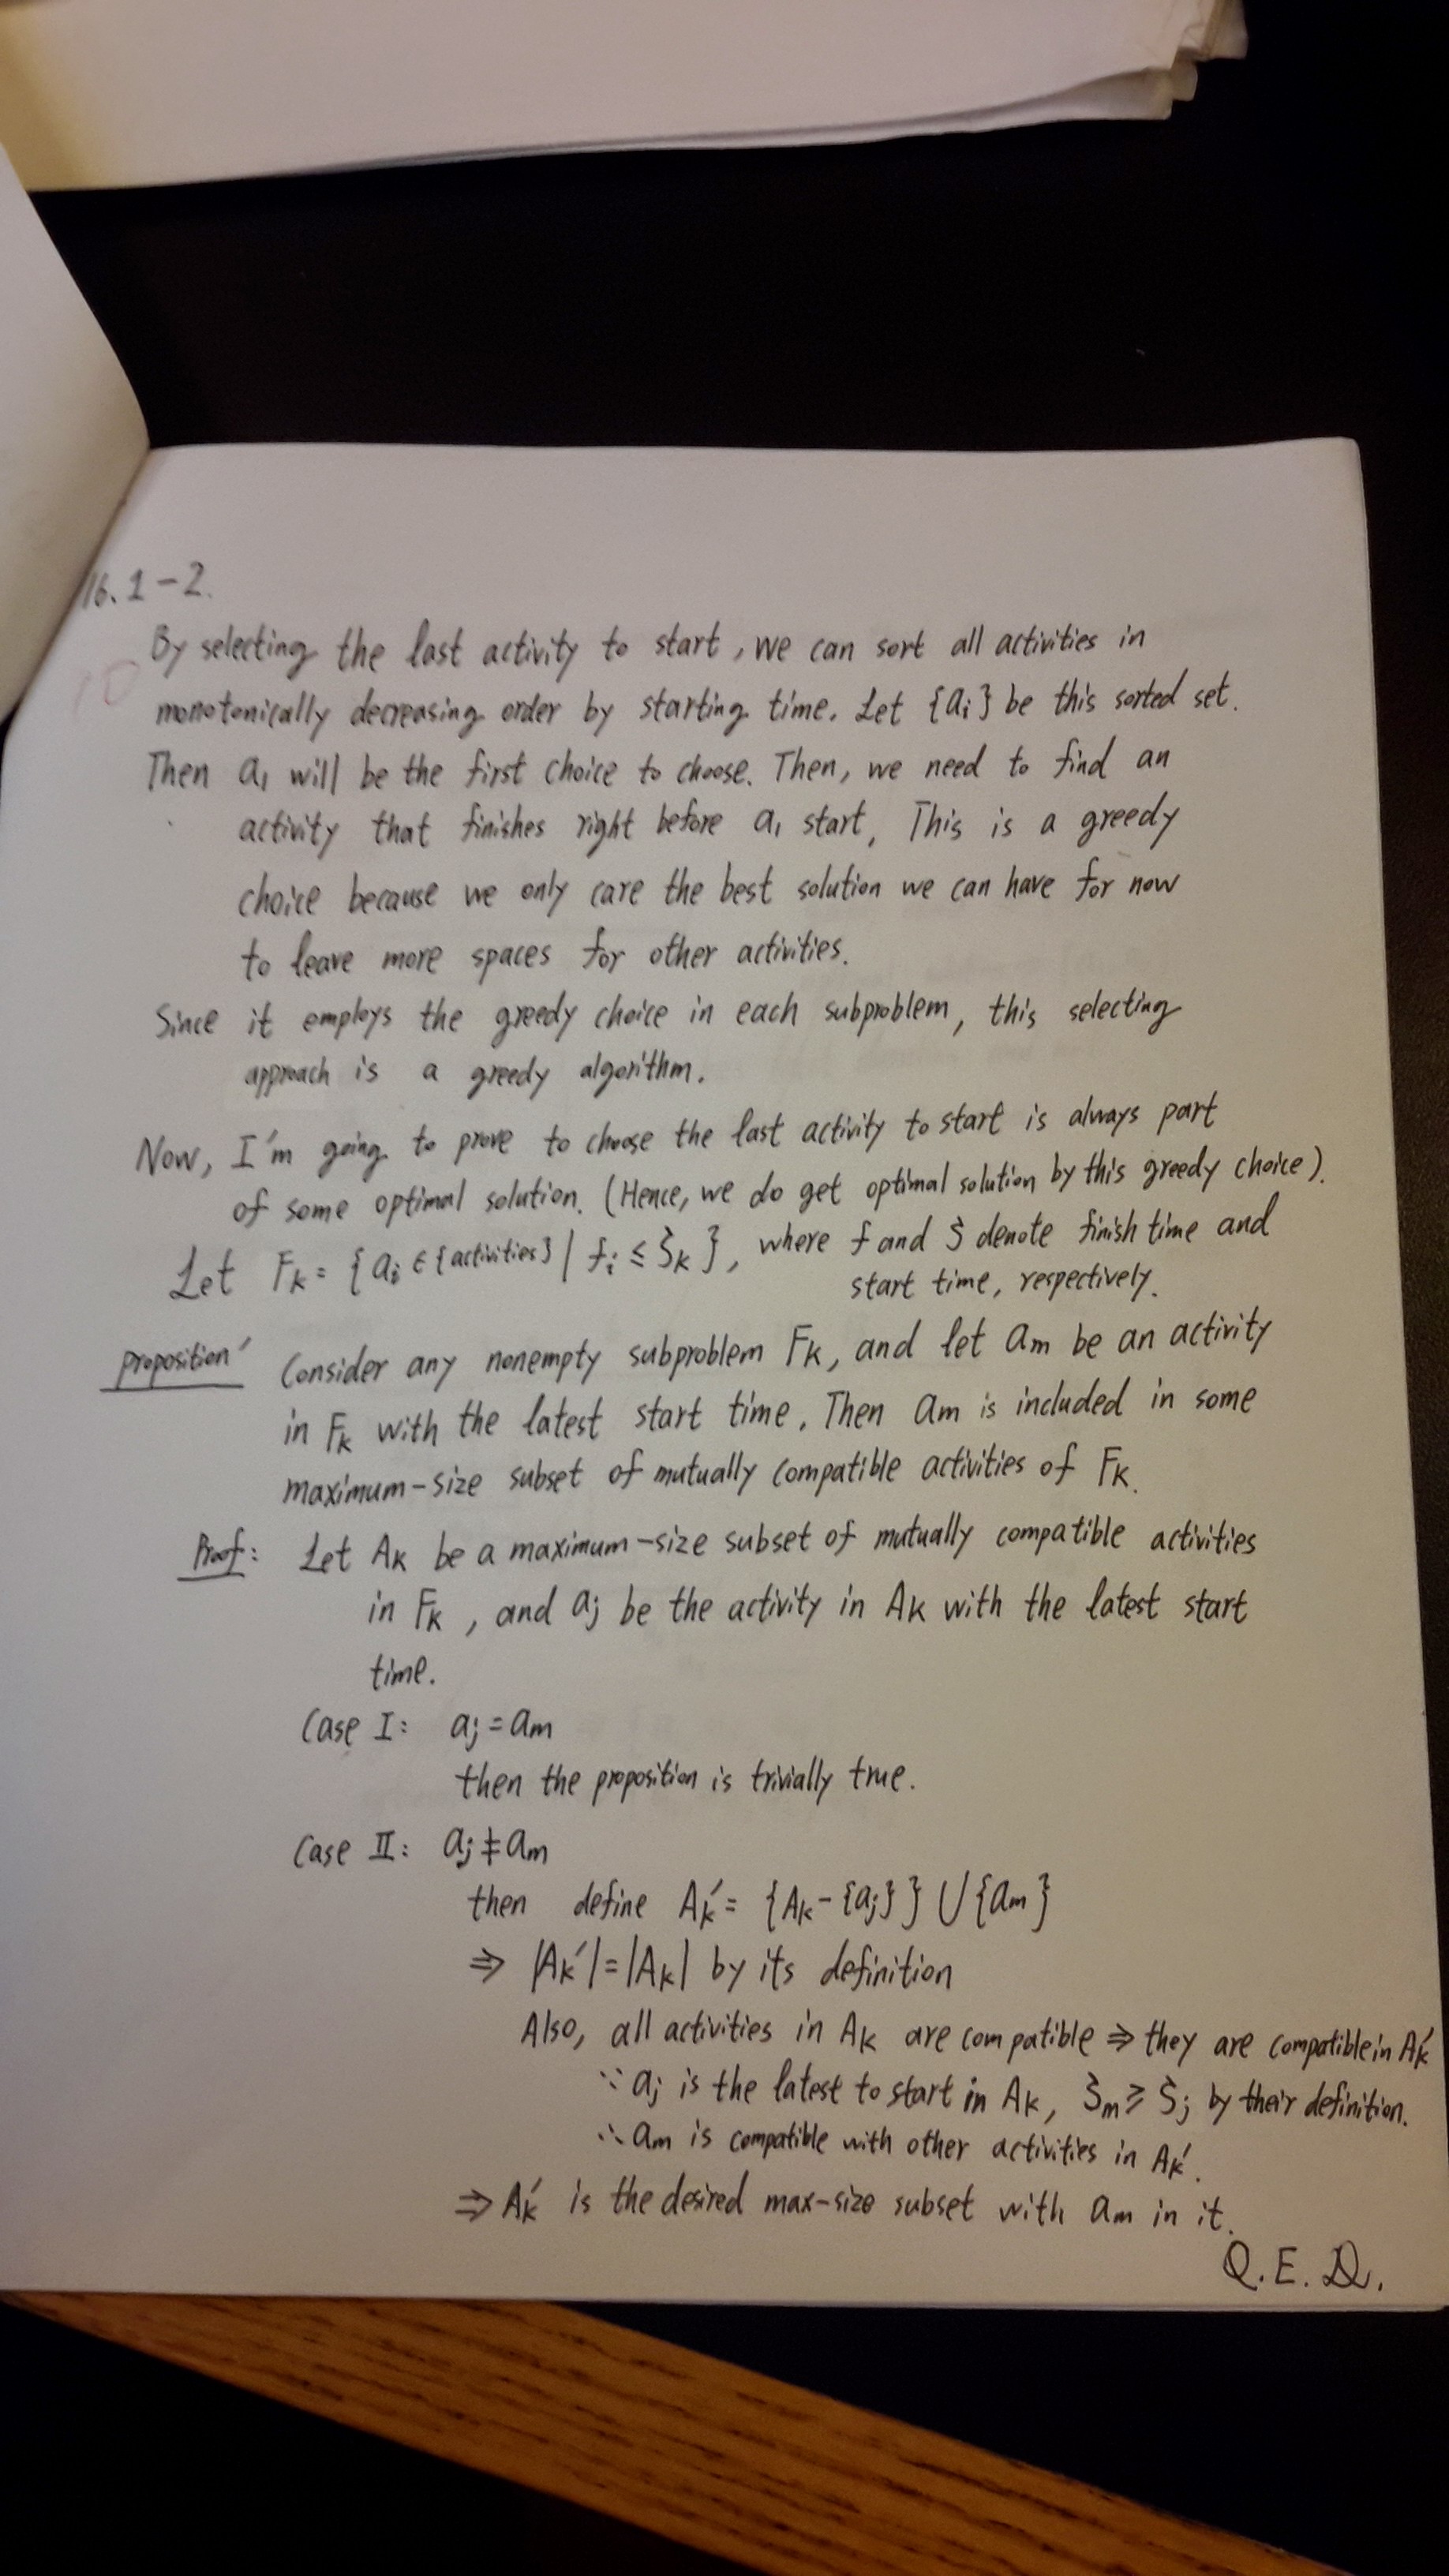 16.1-2.
By selecting the last activity to start, we can sort all activities in
10
monotonically decreasing order by starting time. Let {ai} be this sorted set.
Then a1 will be the first choice to choose. Then, we need to find an
activity that finishes right before a1 start, This is a greedy
choice because we only care the best solution we can have for now
to leave more spaces for other activities.
Since it employs the greedy choice in each subproblem, this selecting
approach is a greedy algorithm.
Now, I'm going to prove to choose the last activity to start is always part
of some optimal solution. (Hence, we do get optimal solution by this greedy choice).
Let Fk = {ai ∈ {activities} | fi ≤ Sk }, where f and S denote finish time and
start time, respectively.
proposition' Consider any nonempty subproblem Fk, and let am be an activity
in Fk with the latest start time. Then am is included in some
maximum-size subset of mutually compatible activities of Fk.
Proof: Let Ak be a maximum-size subset of mutually compatible activities
in Fk, and aj be the activity in Ak with the latest start
time.
Case I: aj = am
then the proposition is trivially true.
Case II: aj ≠ am
then define Ak' = {Ak - {aj}} ∪ {am}
⇒ |Ak'| = |Ak| by its definition
Also, all activities in Ak are compatible ⇒ they are compatible in Ak'
∵ aj is the latest to start in Ak, Sm ≥ Sj by their definition.
∴ am is compatible with other activities in Ak'.
⇒ Ak' is the desired max-size subset with am in it.
Q.E.D.